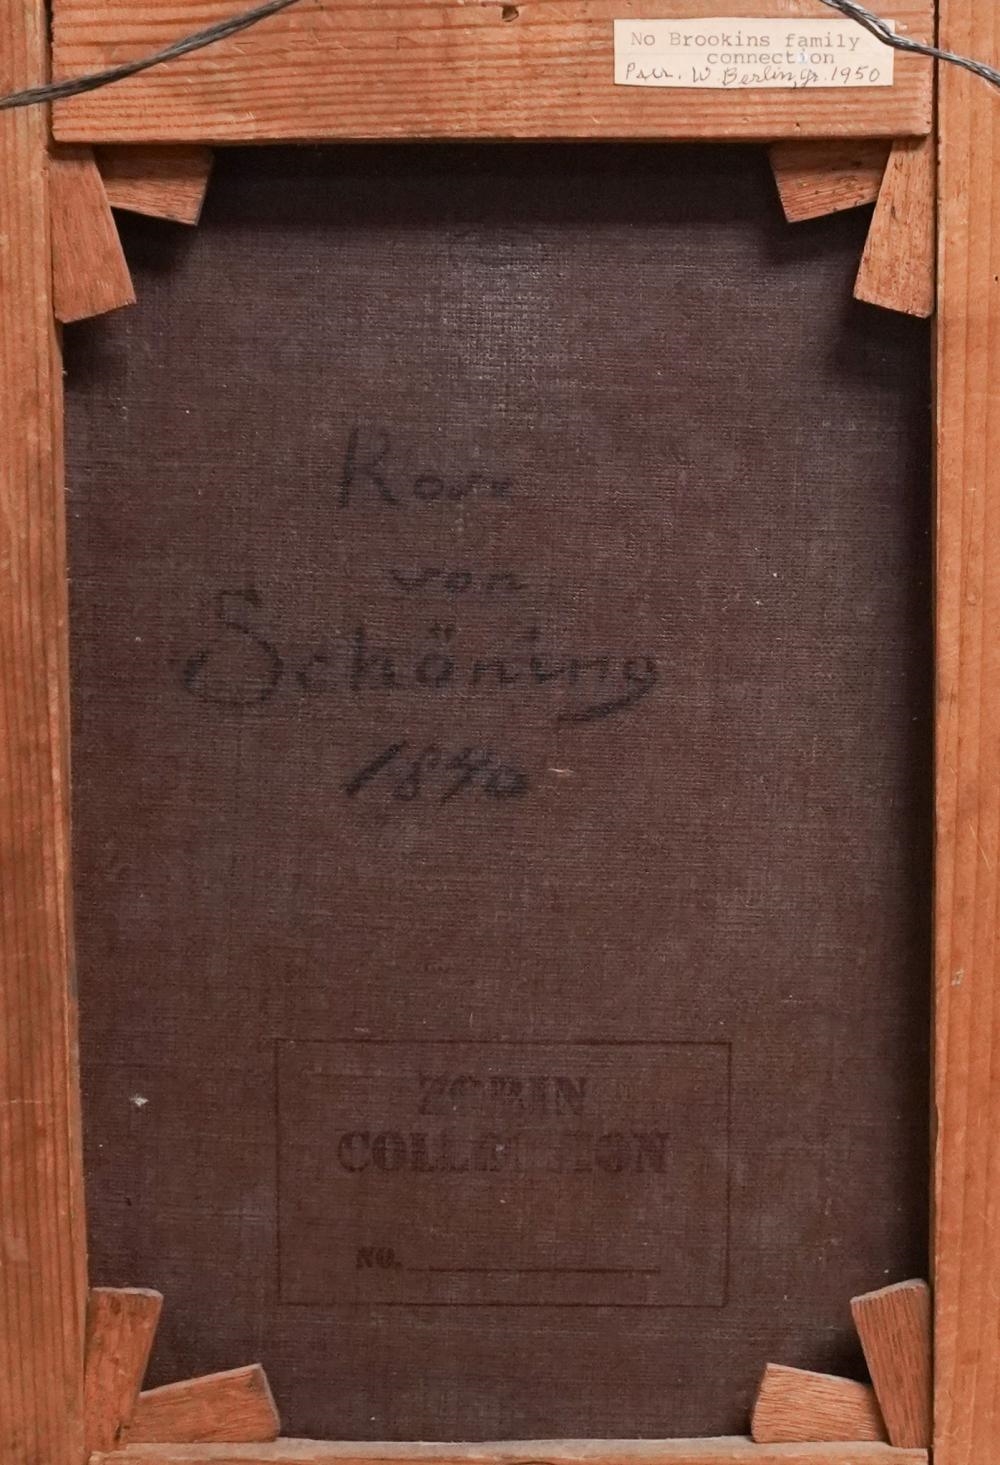 No Brookins family
connection
Pur. W. Berlin, gr. 1950
Rose
von
Schöning
1840
ZORIN
COLLECTION
NO.